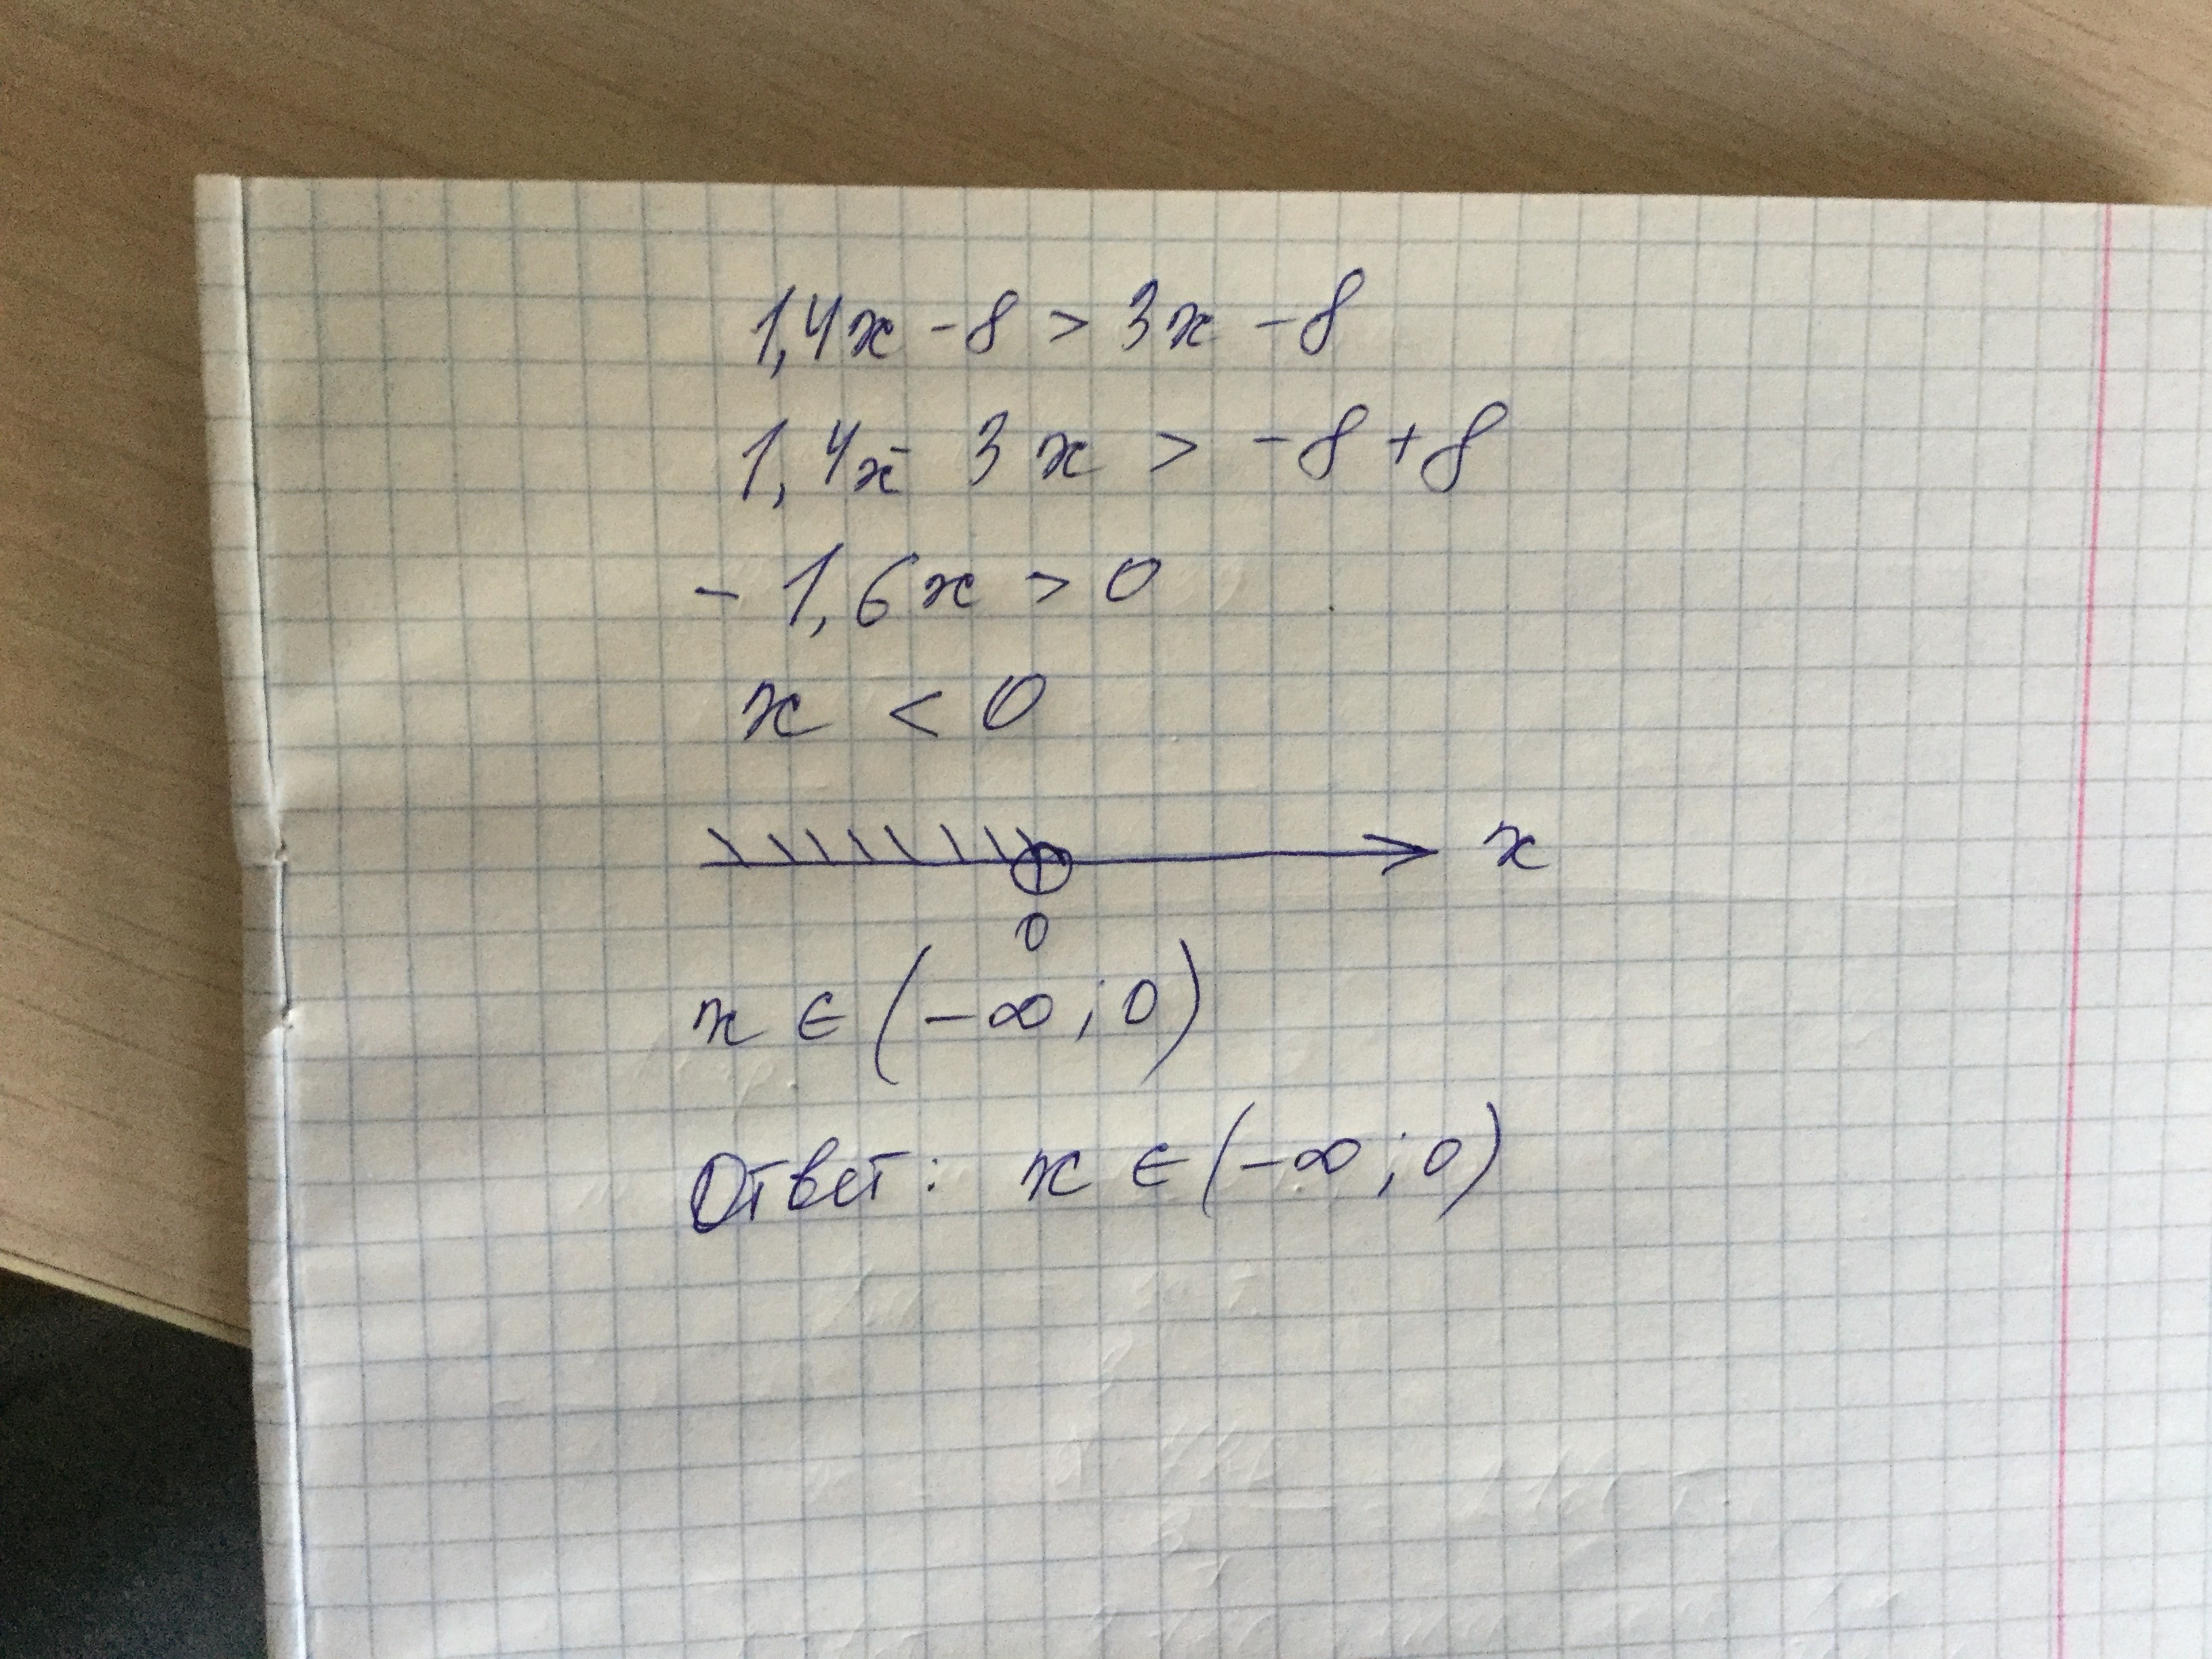 1,4x - 8 > 3x - 8
1,4x - 3x > -8 + 8
- 1,6x > 0
x < 0
x
0
x ∈ (-∞; 0)
Ответ: x ∈ (-∞; 0)